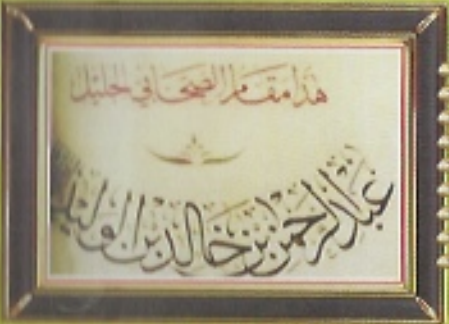 هذا مقام الصحابي الجليل
عبد الرحمن بن خالد بن الوليد